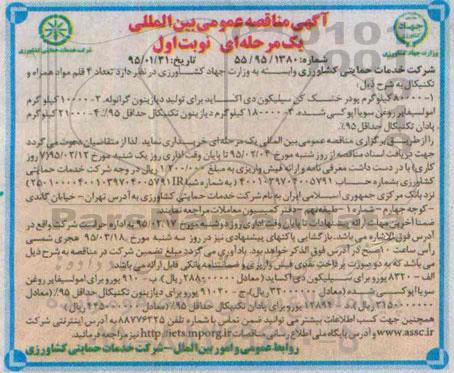 آگهی مناقصه عمومی بین المللی
یک مرحله ای نوبت اول
وزارت جهاد کشاورزی
شرکت خدمات حمایتی کشاورزی
شماره: ۵۵/۹۵/۱۳۸۰ تاریخ: ۹۵/۰۱/۳۱
شرکت خدمات حمایتی کشاورزی وابسته به وزارت جهاد کشاورزی در نظر دارد تعداد ۴ قلم مواد همراه و
تکنیکال به شرح ذیل:
۱-۸۰۰۰۰۰ کیلوگرم پودر خشک کن سیلیکون دی اکساید برای تولید دیازینون گرانوله. ۲-۱۰۰۰۰۰ کیلوگرم
امولسیفایر روغن سویا اپوکسی شده. ۳-۱۸۰۰۰۰ کیلوگرم دیازینون تکنیکال حداقل ۹۵٪. ۴-۲۱۰۰۰۰ کیلوگرم
پادان تکنیکال حداقل ۹۵٪.
را از طریق برگزاری مناقصه عمومی بین المللی یک مرحله ای خریداری نماید لذا از متقاضیان دعوت می گردد
جهت دریافت اسناد مناقصه از روز شنبه مورخ ۹۵/۰۲/۰۴ تا پایان وقت اداری روز یک شنبه مورخ ۹۵/۰۲/۱۲ (۷ روز
کاری) با در دست داشت معرفی نامه و ارائه فیش واریزی به مبلغ ۱/۰۰۰/۰۰۰ ریال در وجه شرکت خدمات حمایتی
کشاورزی بشماره حساب
نزد بانک مرکزی جمهوری اسلامی ایران به نام شرکت خدمات حمایتی کشاورزی به آدرس تهران - خیابان گاندی
- کوچه چهارم - شماره ۱ - طبقه نهم - دفتر کمیسیون معاملات مراجعه نمایند.
ضمنا آخرین مهلت ارائه پیشنهادات تا پایان وقت اداری روز دوشنبه مورخ ۹۵/۰۳/۱۷ به اداره حراست شرکت واقع در
آدرس فوق الاشاره می باشد. بازگشایی پاکتهای پیشنهادی نیز در روز سه شنبه مورخ ۹۵/۰۳/۱۸ هجری شمسی
رأس ساعت صبح در آدرس فوق الذکر خواهد بود. یادآوری می گردد مبلغ تضمین شرکت در مناقصه به شرح ذیل
می باشد که به دو صورت پرداخت نقدی فیش واریزی و ضمانتنامه بانکی قابل ارائه می باشد:
الف - ۸۳۲۰ یورو برای سیلیکون دی اکساید (معادل ریال)، ب - ۹۱۰۰ یورو برای امولسیفایر روغن
سویا اپوکسی شده (معادل ریال) ج - ۹۱۰۳۰ یورو برای دیازینون تکنیکال حداقل ۹۵٪ (معادل
ریال) د - یورو برای پادان تکنیکال حداقل ۹۵٪ (معادل ریال).
همچنین جهت کسب اطلاعات بیشتر می توانید ضمن تماس با شماره تلفن ۸۸۷۷۶۳۲۵ به آدرس اینترنتی شرکت
www.assc.ir و آدرس پایگاه ملی اطلاع رسانی مناقصات http://iets.mporg.ir نیز مراجعه فرمائید.
روابط عمومی و امور بین الملل - شرکت خدمات حمایتی کشاورزی